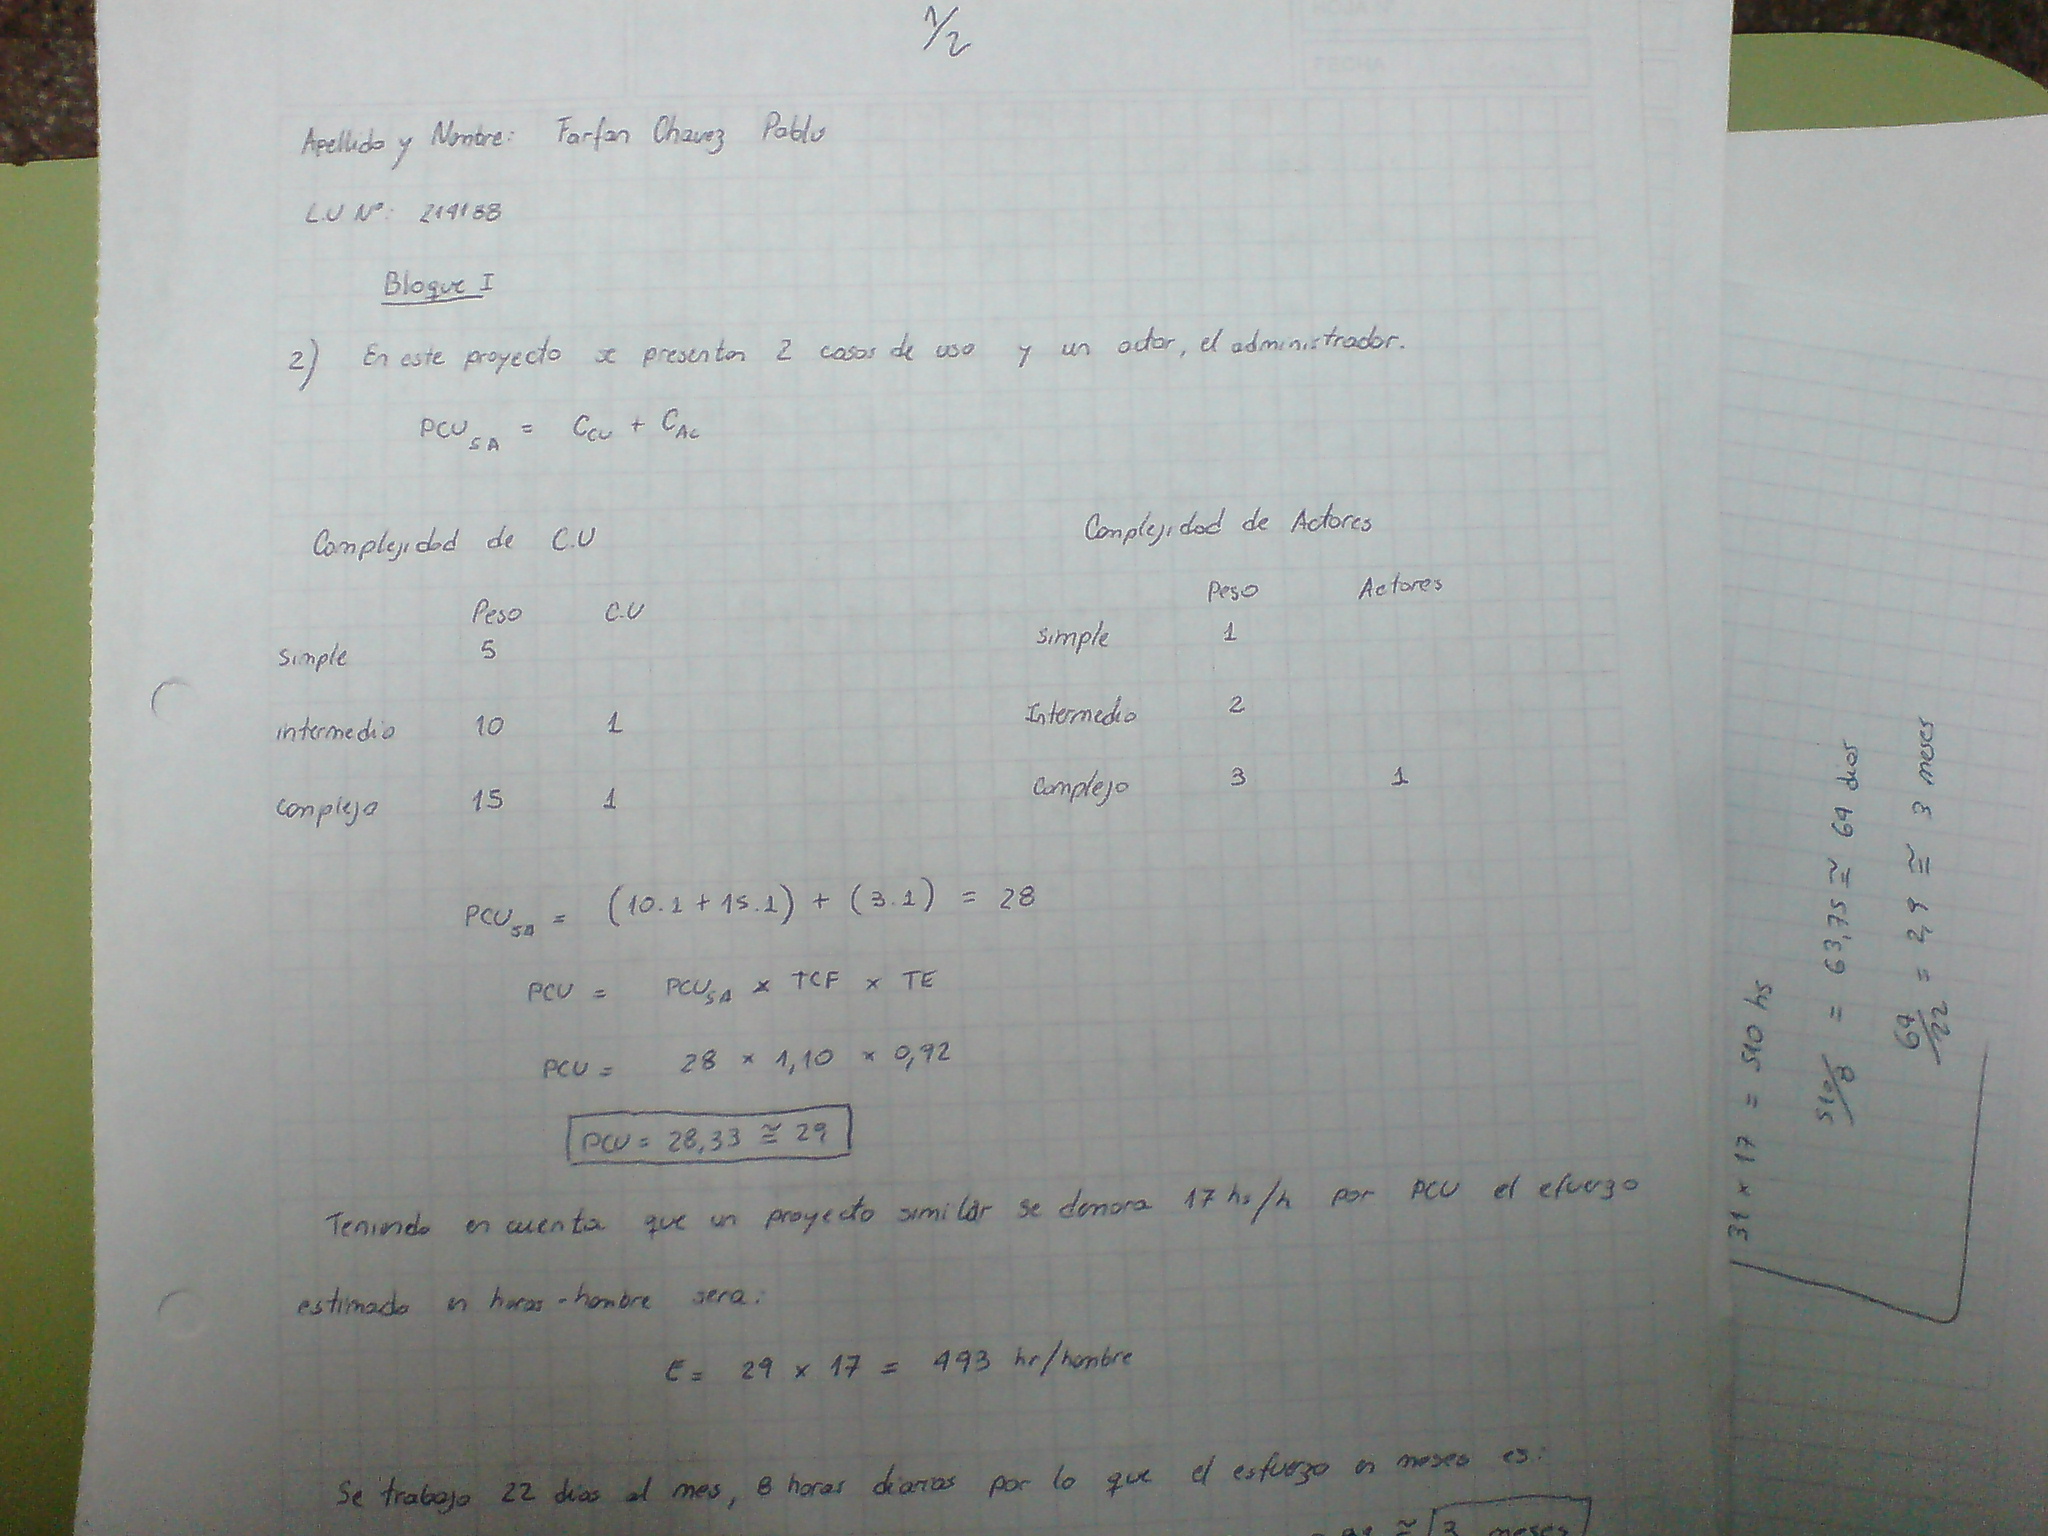 1/2
Apellido y Nombre: Farfan Chavez Pablo
L.U Nº: 219188
Bloque I
2) En este proyecto se presentan 2 casos de uso y un actor, el administrador.
PCU SA = C CU + C AC
Complejidad de C.U
Peso C.U
Simple 5
intermedio 10 1
complejo 15 1
Complejidad de Actores
Peso Actores
Simple 1
Intermedio 2
Complejo 3 1
PCU SA = (10.1 + 15.1) + (3.1) = 28
PCU = PCU SA x TCF x TE
PCU = 28 x 1,10 x 0,92
PCU = 28,33 ≅ 29
Teniendo en cuenta que un proyecto similar se demora 17 hs/h por PCU el efuerzo
estimado en horas-hombre sera:
E = 29 x 17 = 493 hr/hombre
Se trabaja 22 dias al mes, 8 horas diarias por lo que el esfuerzo en meses es:
≅ 3 meses
31 x 17 = 510 hs
510/8 = 63,75 ≅ 64 dias
64/22 = 2,9 ≅ 3 meses